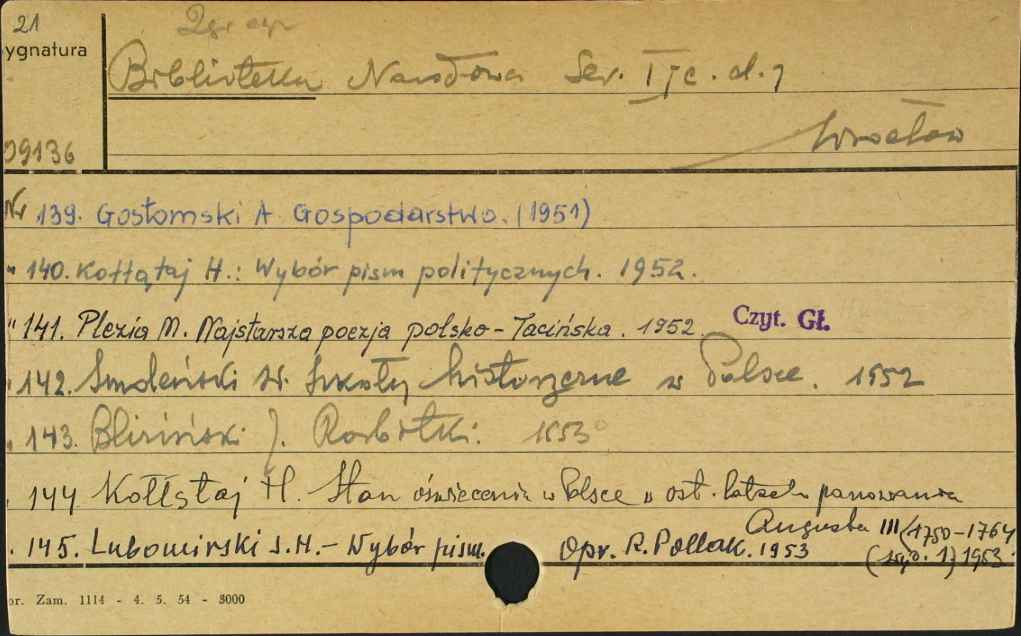 21
ygnatura
Biblioteka Narodowa Ser. I
Wrocław
09136
Nr 139. Gostomski A Gospodarstwo. (1951)
" 140. Kołłątaj H.: Wybór pism politycznych. 1952.
" 141. Plezia M. Najstarsza poezja polsko-łacińska. 1952. Czyt. Gł.
" 142. Smoleński W. Szkoły historyczne w Polsce. 1952
" 143. Bliziński J. Rozbitki. 1953
" 144 Kołłątaj H. Stan oświecenia w Polsce w ost. latach panowania
Augusta III (1750-1764
" 145. Lubomirski S.H. - Wybór pism. Opr. R. Pollak. 1953
(wyd. 1) 1953.
or. Zam. 1114 - 4. 5. 54 - 3000